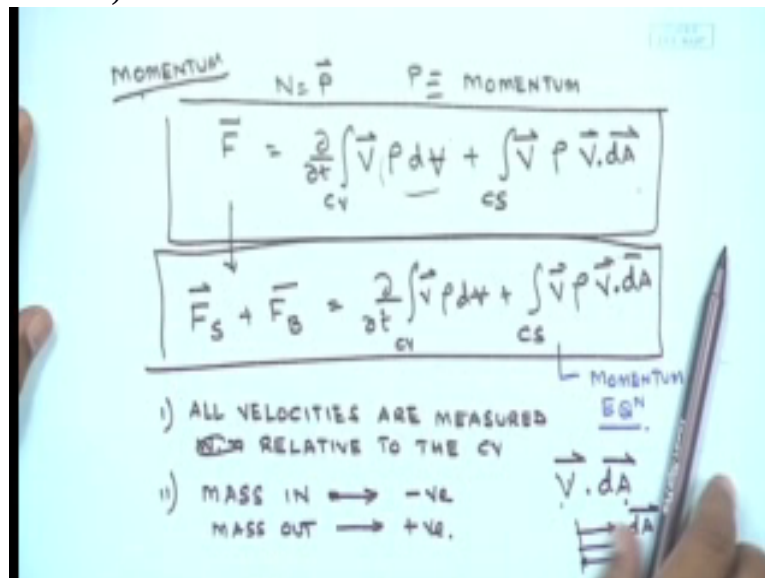 MOMENTUM N = P⃗ P ≡ MOMENTUM
F⃗ = ∂/∂t ∫_CV V⃗ ρ dV̶ + ∫_CS V⃗ ρ V⃗.dA⃗
F⃗_S + F⃗_B = ∂/∂t ∫_CV V⃗ ρ dV̶ + ∫_CS V⃗ ρ V⃗.dA⃗
MOMENTUM
EQᴺ.
i) ALL VELOCITIES ARE MEASURED
RELATIVE TO THE CV
ii) MASS IN ⟷ -ve
MASS OUT ⟶ +ve.
V⃗ . dA⃗
dA⃗